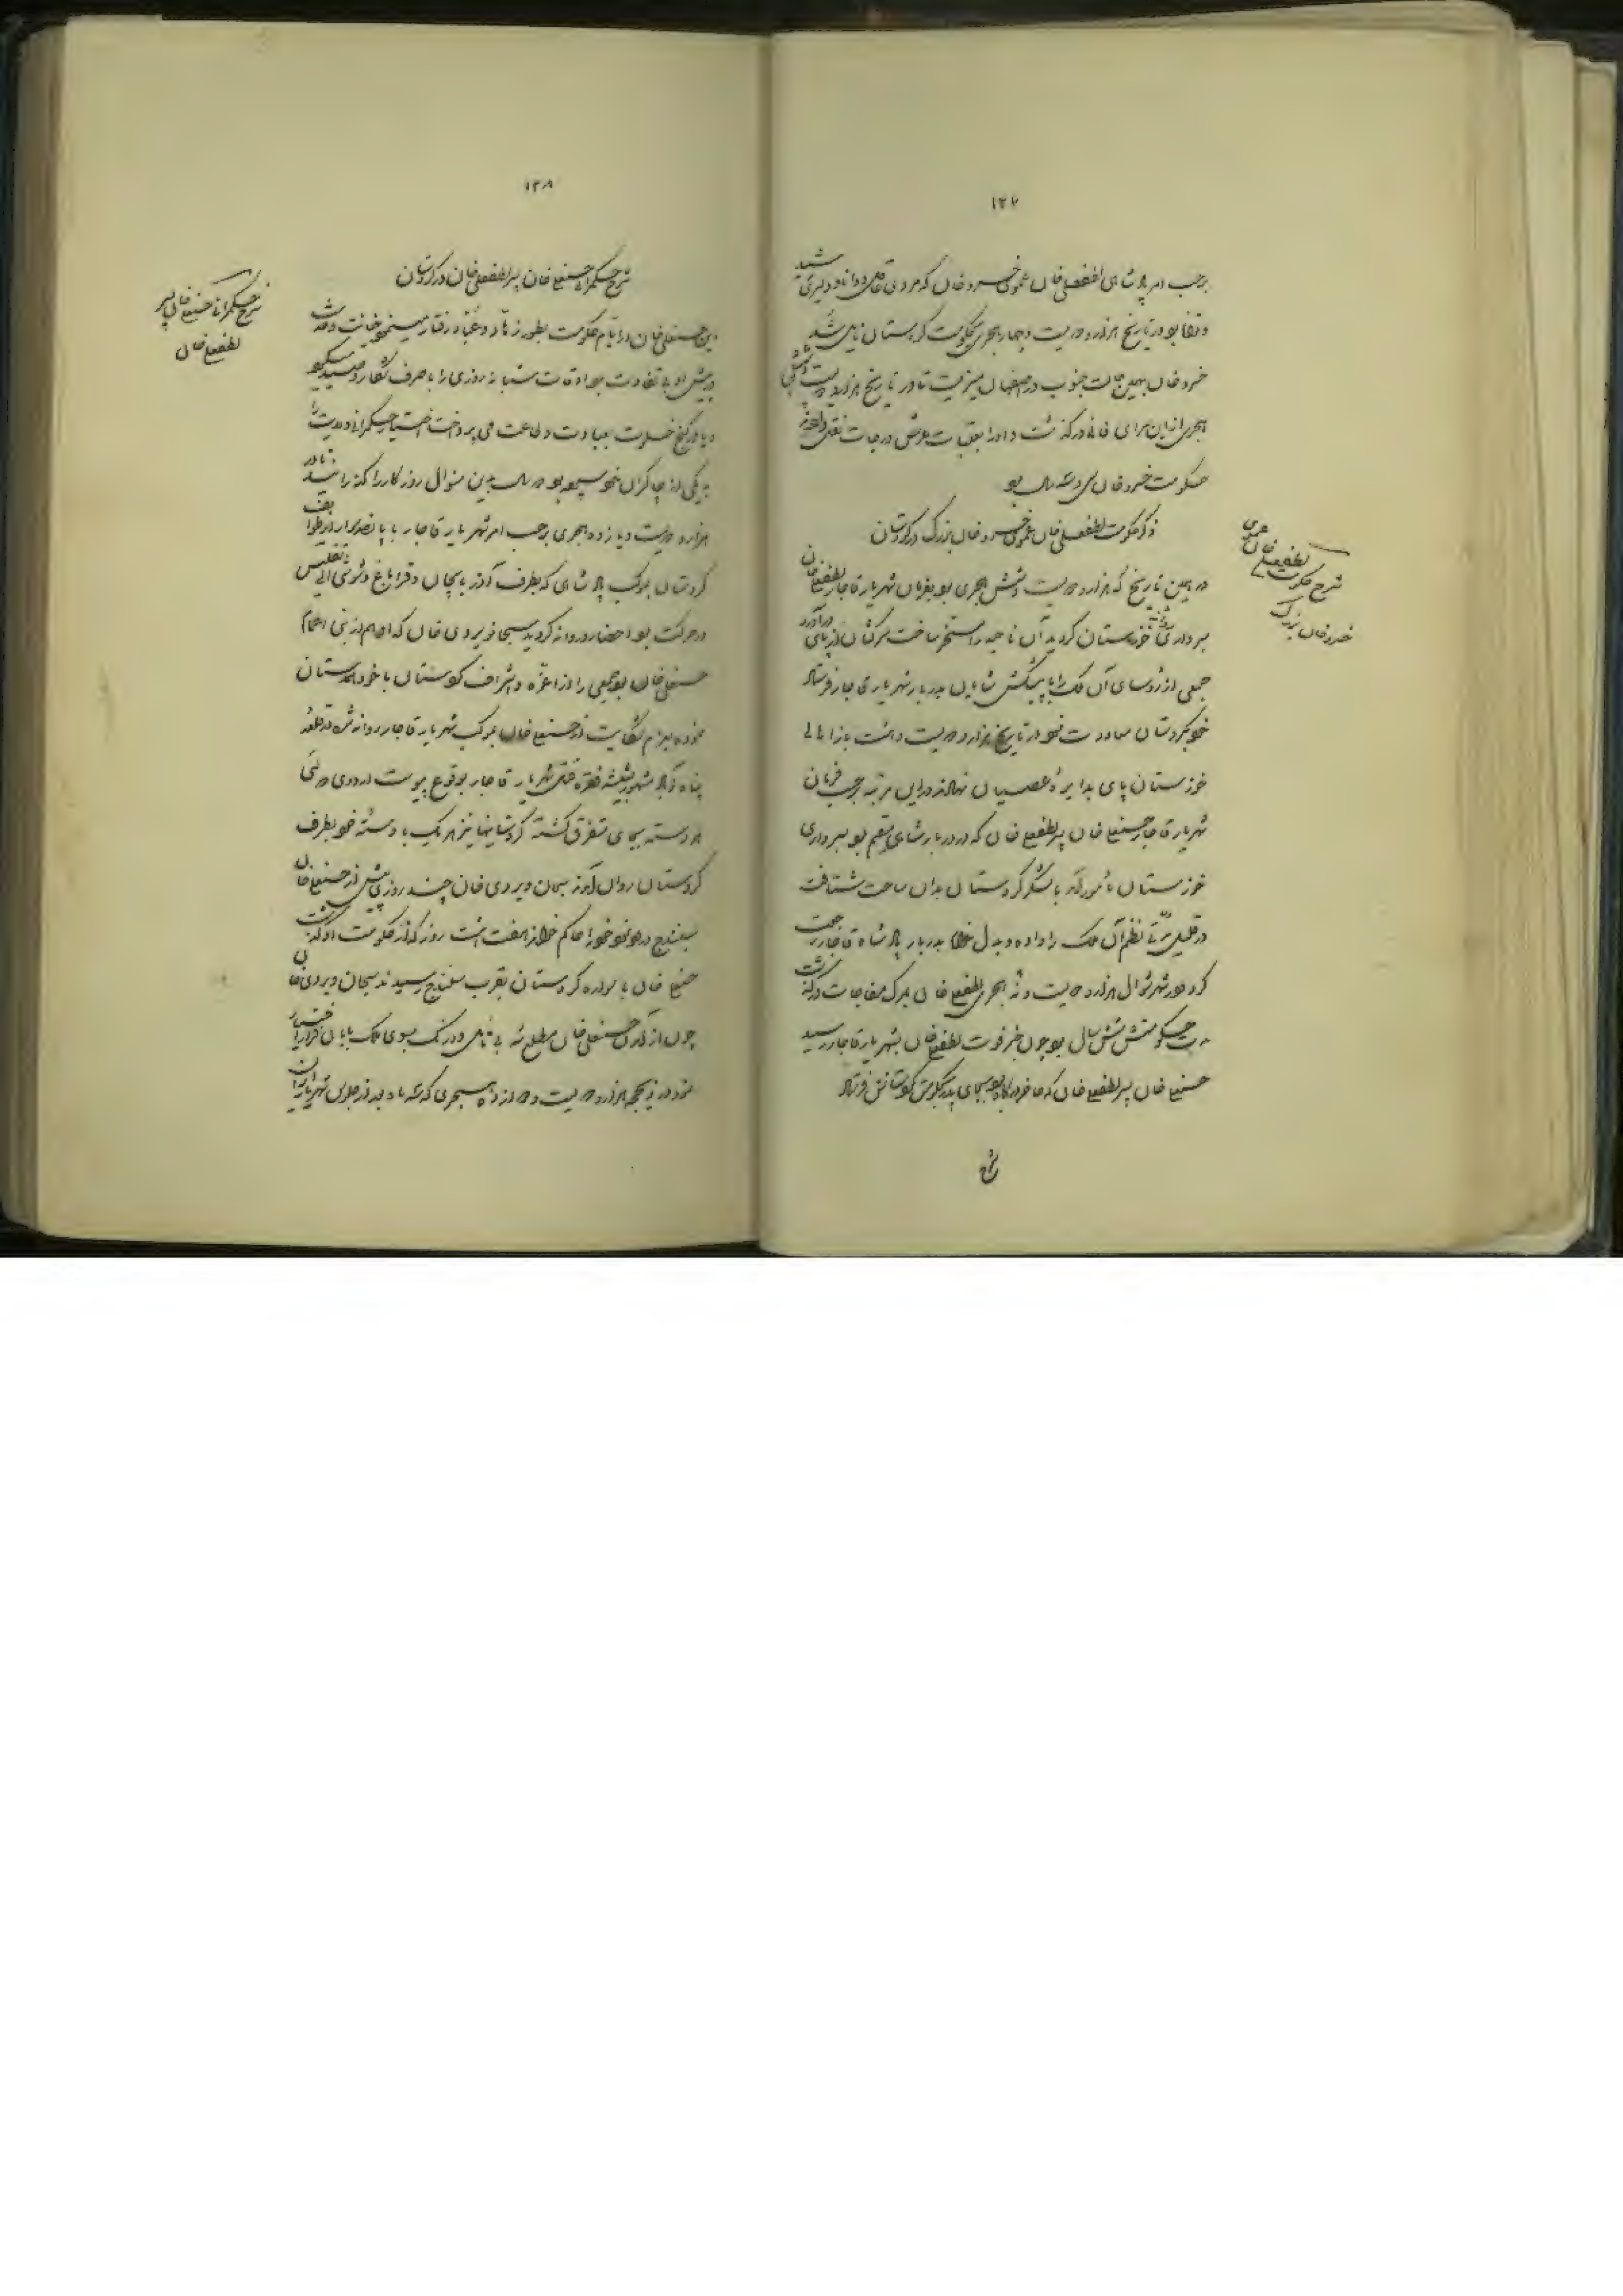 ۱۲۷
برحسب امر پادشاهی لطفعلی خان عموی خسرو خان که مردی عاقل و دانا و دلیری رشید
و توانا بود در تاریخ هزار و دویست و چهار هجری بحکومت کردستان نایل شد
خسرو خان بهمین حالت جنون در اصفهان میزیست تا در تاریخ هزار و دویست و شش
هجری از این سرای فانی درگذشت و او را بعتبات عرش درجات نقل دادند
حکومت خسرو خان سی و سه سال بود
ذکر حکومت لطفعلی خان عموی خسرو خان بزرگ در کردستان
شرح حکومت لطفعلی خان عموی
خسرو خان بزرگ
در همین تاریخ که هزار و دویست و شش هجری بود بفرمان شهریار قاجار لطفعلی خان
بسرداری خوزستان روانه گردید آن ناحیه را مسخر ساخت سرکشان از پای درآورد
جمعی از رؤسای آن ملک را با پیشکش شایان بدربار شهریاری قاجار فرستاد
خود بکردستان معاودت نمود در تاریخ هزار و دویست و هشت باز اهالی
خوزستان پای بدایره عصیان نهادند در این مرتبه برحسب فرمان
شهریار قاجار حسنعلی خان پسر لطفعلی خان که در دربار شاهی مقیم بود بسرداری
خوزستان مأمور آمد با لشکر کردستان بدان ساحت شتافت
در قلیل مدتی نظم آن ملک را داده و بدربار پادشاه قاجار رجعت
کرد در شهر شوال هزار و دویست و نه هجری لطفعلی خان بمرگ مفاجات درگذشت
مدت حکومتش شش سال بود چون خبر فوت لطفعلی خان بشهریار قاجار رسید
حسنعلی خان پسر لطفعلی خان که حاضر رکاب بود بجای پدر بحکومت کردستانش فرستاد
شرح
۱۲۸
شرح حکمرانی حسنعلی خان پسر لطفعلی خان در کردستان
شرح حکمرانی حسنعلی خان پسر
لطفعلی خان
این حسنعلی خان در ایام حکومت بطور زهاد و عباد رفتار مینمود خیانت و خدمت
در پیش او بی تفاوت بود اوقات شبانه روزی را یا صرف شکار و صید میکرد
و یا در کنج خلوت بعبادت و طاعت می پرداخت اختیار حکمرانی ولایت را
به یکی از چاکران خود سپرده بود دو سال بدین منوال روزگار را گذرانید تا در
هزار و دویست و یازده هجری برحسب امر شهریار قاجار با پانصد سوار از طوایف
کردستان بموکب پادشاهی که بطرف آذربایجان و قراباغ و شوشی الی تفلیس
در حرکت بود احضار و روانه گردید سبحان ویردی خان که او هم از بنی اعمام
حسنعلی خان بود جمعی را از اعزه و اشراف کردستان با خود همدستان
نموده بعزم شکایت از حسنعلی خان بموکب شهریار قاجار روانه شد در قلعه
پناه آباد مشهور بشیشه فقره قتل شهریار قاجار بوقوع پیوست اردوی دولتی
هر دسته بجای متفرق گشته کردستانیها نیز هر یک با دسته خود بطرف
کردستان روان آمدند سبحان ویردی خان چند روز پیش از حسنعلی خان
بسنندج در ورود خود را حاکم خواند هفت هشت روز که از حکومت او گذشت
حسنعلی خان با سواره کردستان بقرب سنندج رسیدند سبحان ویردی خان
چون از آمدن حسنعلی خان مطلع شد بی تأمل و درنگ بسوی ملک بابان فرار اختیار
نمود در ذیحجه هزار و دویست و دوازده هجری که سه ماه بعد از جلوس شهریار ایران